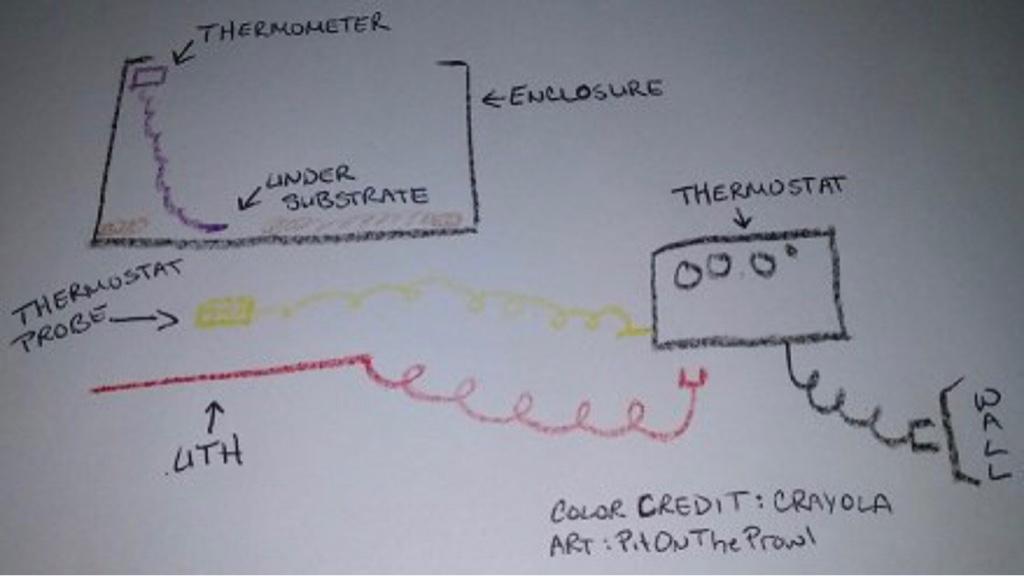 THERMOMETER
← ENCLOSURE
UNDER
SUBSTRATE
THERMOSTAT
THERMOSTAT
PROBE
UTH
WALL
COLOR CREDIT: CRAYOLA
ART: PitOnTheProwl